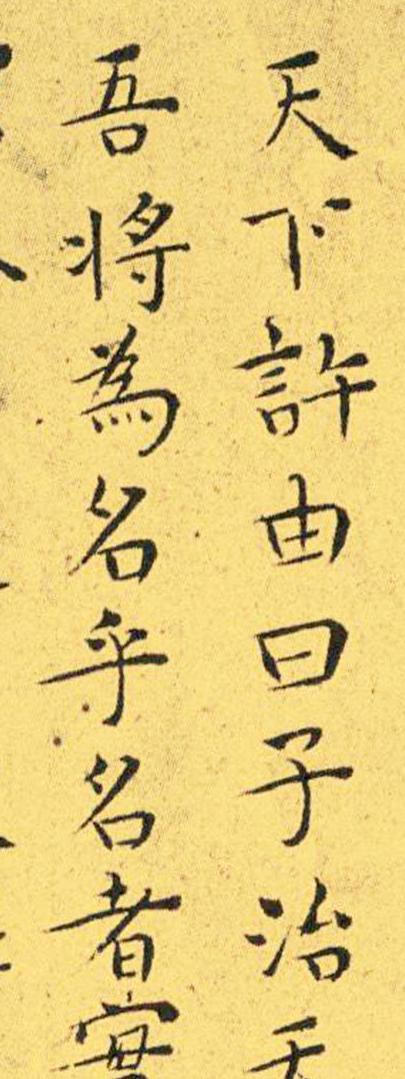 天下許由曰子治天
吾將為名乎名者實